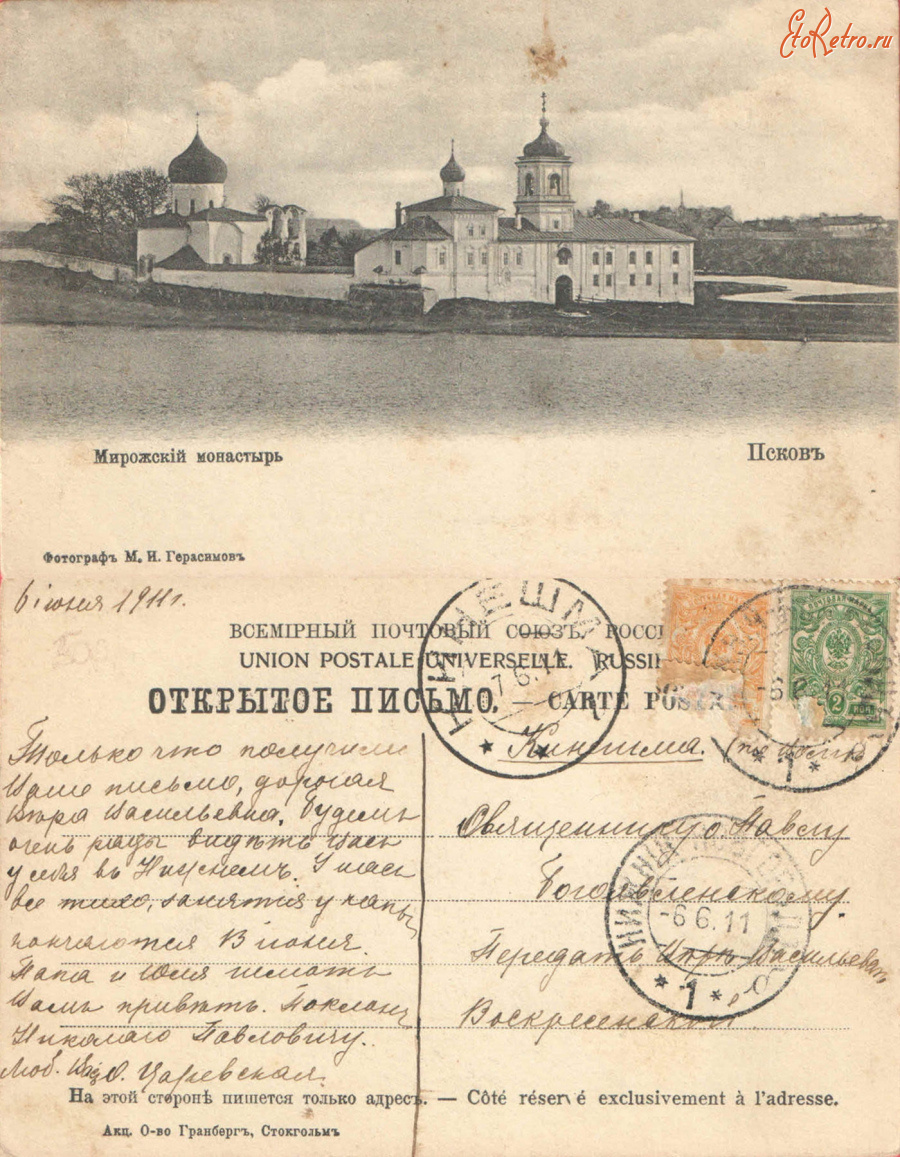 EtoRetro.ru
Мирожскій монастырь
Псковъ
Фотографъ М. И. Герасимовъ
6 іюня 1911г.
ВСЕМІРНЫЙ ПОЧТОВЫЙ СОЮЗЪ. РОСС
UNION POSTALE UNIVERSELLE. RUSSI
ОТКРЫТОЕ ПИСЬМО. — CARTE POSTA
КИНЕШМА
7.6.11
2
КОП
Только что получили
Ваше письмо, дорогая
Вѣра Васильевна. Будемъ
очень рады видѣть Васъ
у себя въ Нижнемъ. У насъ
все тихо, занятія у папы
кончаются 13 іюня
Папа и Юлія шлютъ
Вамъ привѣтъ. Поклонъ
Николаю Павловичу.
Люб. Вас О. Царевская.
Кинешма. (по Волгѣ)
Священнику о. Павлу
Богоявленскому
Передать Васильевнѣ
Воскресенской.
НИЖНІЙ
-6.6.11
* 1 *
* 1 *
На этой сторонѣ пишется только адресъ. — Côté réservé exclusivement à l'adresse.
Акц. О-во Гранбергъ, Стокгольмъ